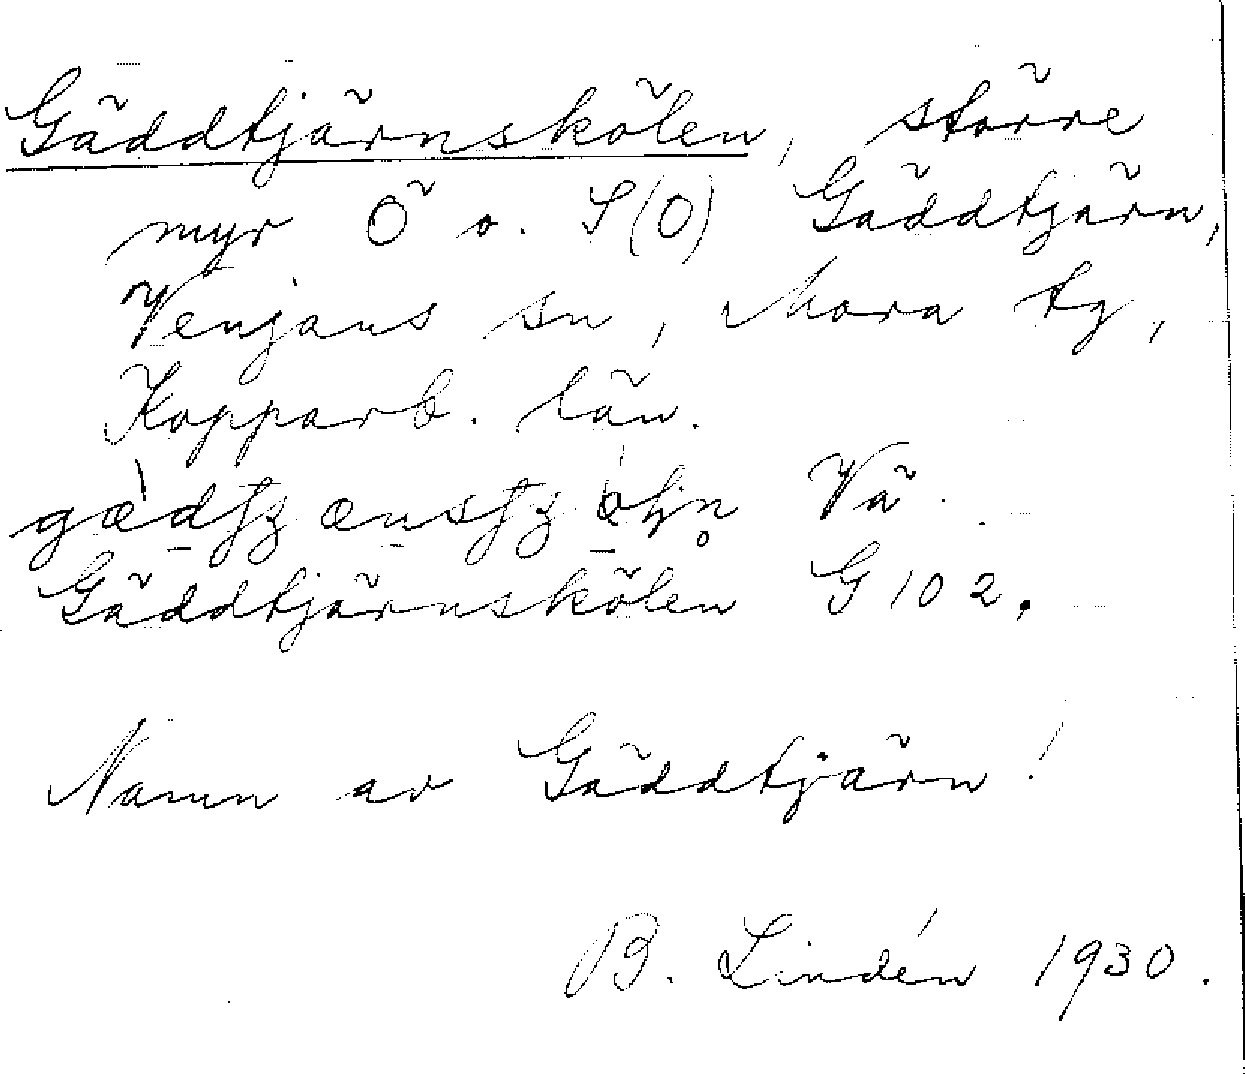 Gäddtjärnskölen, större
myr Ö o. S(O) Gäddtjärn,
Venjans sn, Mora tg,
Kopparb. län.
Vä.
Gäddtjärnskölen G 102.
Namn av Gäddtjärn!
B. Lindén 1930.